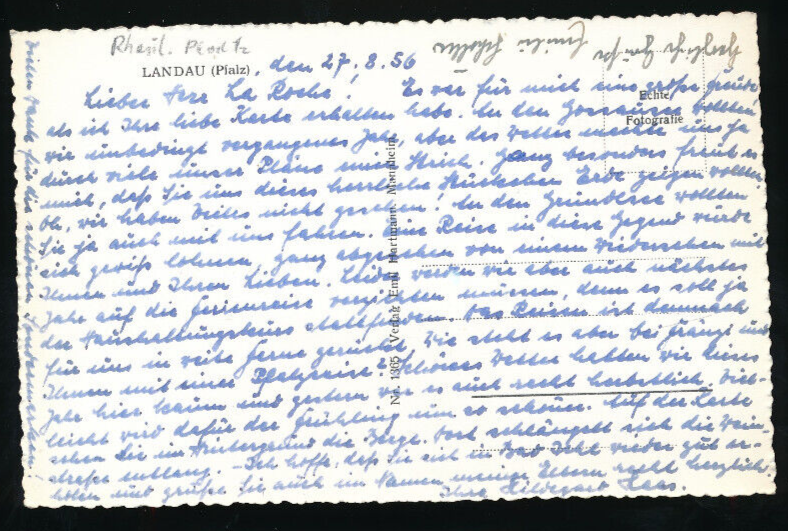 Rheinl. Pfalz
LANDAU (Pfalz), den 27.8.56
Echte
Fotografie
Lieber Herr La Roche! Es war für mich eine große Freude,
als ich Ihre liebe Karte erhalten habe. In den Gosausee wollten
wir unbedingt vergangenes Jahr, aber das Wetter machte uns ja
durch viele unser Pläne einen Strich. Ganz besonders freut es
mich, daß Sie uns dieses herrliche Stückchen Erde zeigen wollten.
Oh, wir haben vieles nicht gesehen! In den Grundlsee wollten
Sie ja auch mit uns fahren. Eine Reise in diese Gegend würde
sich gewiß lohnen, ganz abgesehen von einem Wiedersehen mit
Ihnen und Ihren Lieben. Leider werden wir aber auch nächstes
Jahr auf die Ferienreise verzichten müssen, denn es soll ja
der Haushaltungskurs stattfinden. Das Reisen ist demnach
für uns in weite Ferne gerückt. Wie steht es aber bei und
Ihnen mit einer Pfalzreise? Schönes Wetter hatten wir dieses
Jahr hier kaum und gestern war es auch recht herbstlich. Viel-
leicht wird dafür der Frühling um so schöner. Auf der Karte
sehen Sie im Hintergrund die Berge. Dort schlängelt sich die Wein-
straße entlang. - Ich hoffe, daß Sie sich in Bad Ischl wieder gut er-
holen und grüße Sie auch im Namen meiner Eltern recht herzlich
Ihre Hildegard Haas.
Vielen Dank für die schönen Sondermarken!
Nr. 1365 Verlag Emil Hartmann, Mannheim